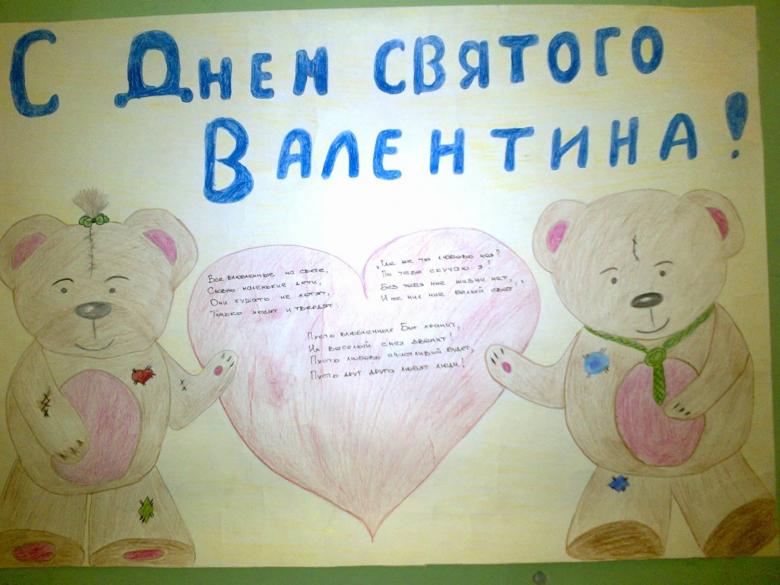 С Днем святого
Валентина!
Все влюбленные на свете,
Словно маленькие дети,
Они кушать не хотят,
Только ходят и твердят:
"Где же ты любовь моя?
По тебе скучаю я!
Без тебя мне жизни нет,
И не мил мне белый свет".
Пусть влюбленных Бог хранит,
Их веселый смех звенит
Пусть любовь счастливой будет,
Пусть друг друга любят люди!